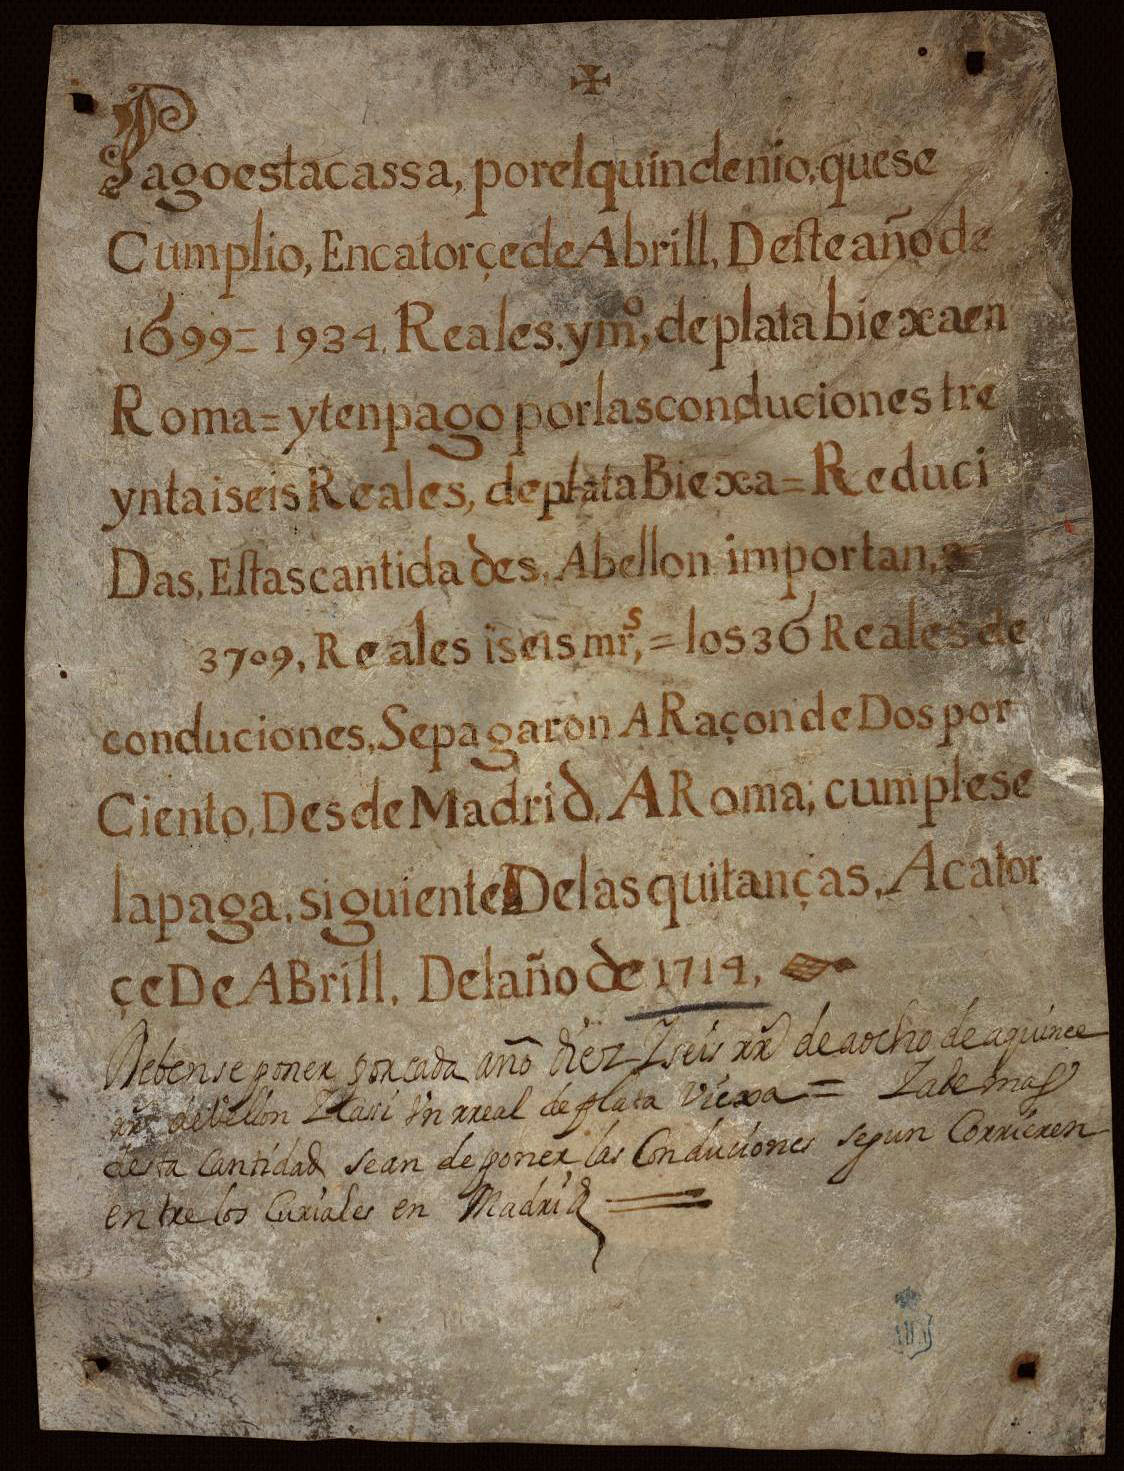 ✠
Pagoestacassa, porelquindenio, quese
Cumplio, Encatorçede Abrill, Desteaño de
1699= 1934, Reales. y mº, deplata biexaen
Roma= ytenpago porlasconduciones tre
yntaiseis Reales, deplata Biexa= Reduci
Das, Estascantidades, Abellon importan,
3709, Reales iseis mrs,= los 36 Reales de
conduciones, Sepagaron A Raçon de Dos por
Ciento, Desde Madrid, A Roma; cumplese
lapaga, siguiente Delas quitanças, Acator
çe De ABrill, Delaño de 1714,
Debense poner por cada año diez Zseis rr de aocho de aquince
de Vellon Zcasi Vn rreal de plata Viexa = Zademas
desta Cantidad sean de poner las Conduciones segun Corrieren
entre los Curiales en Madrid